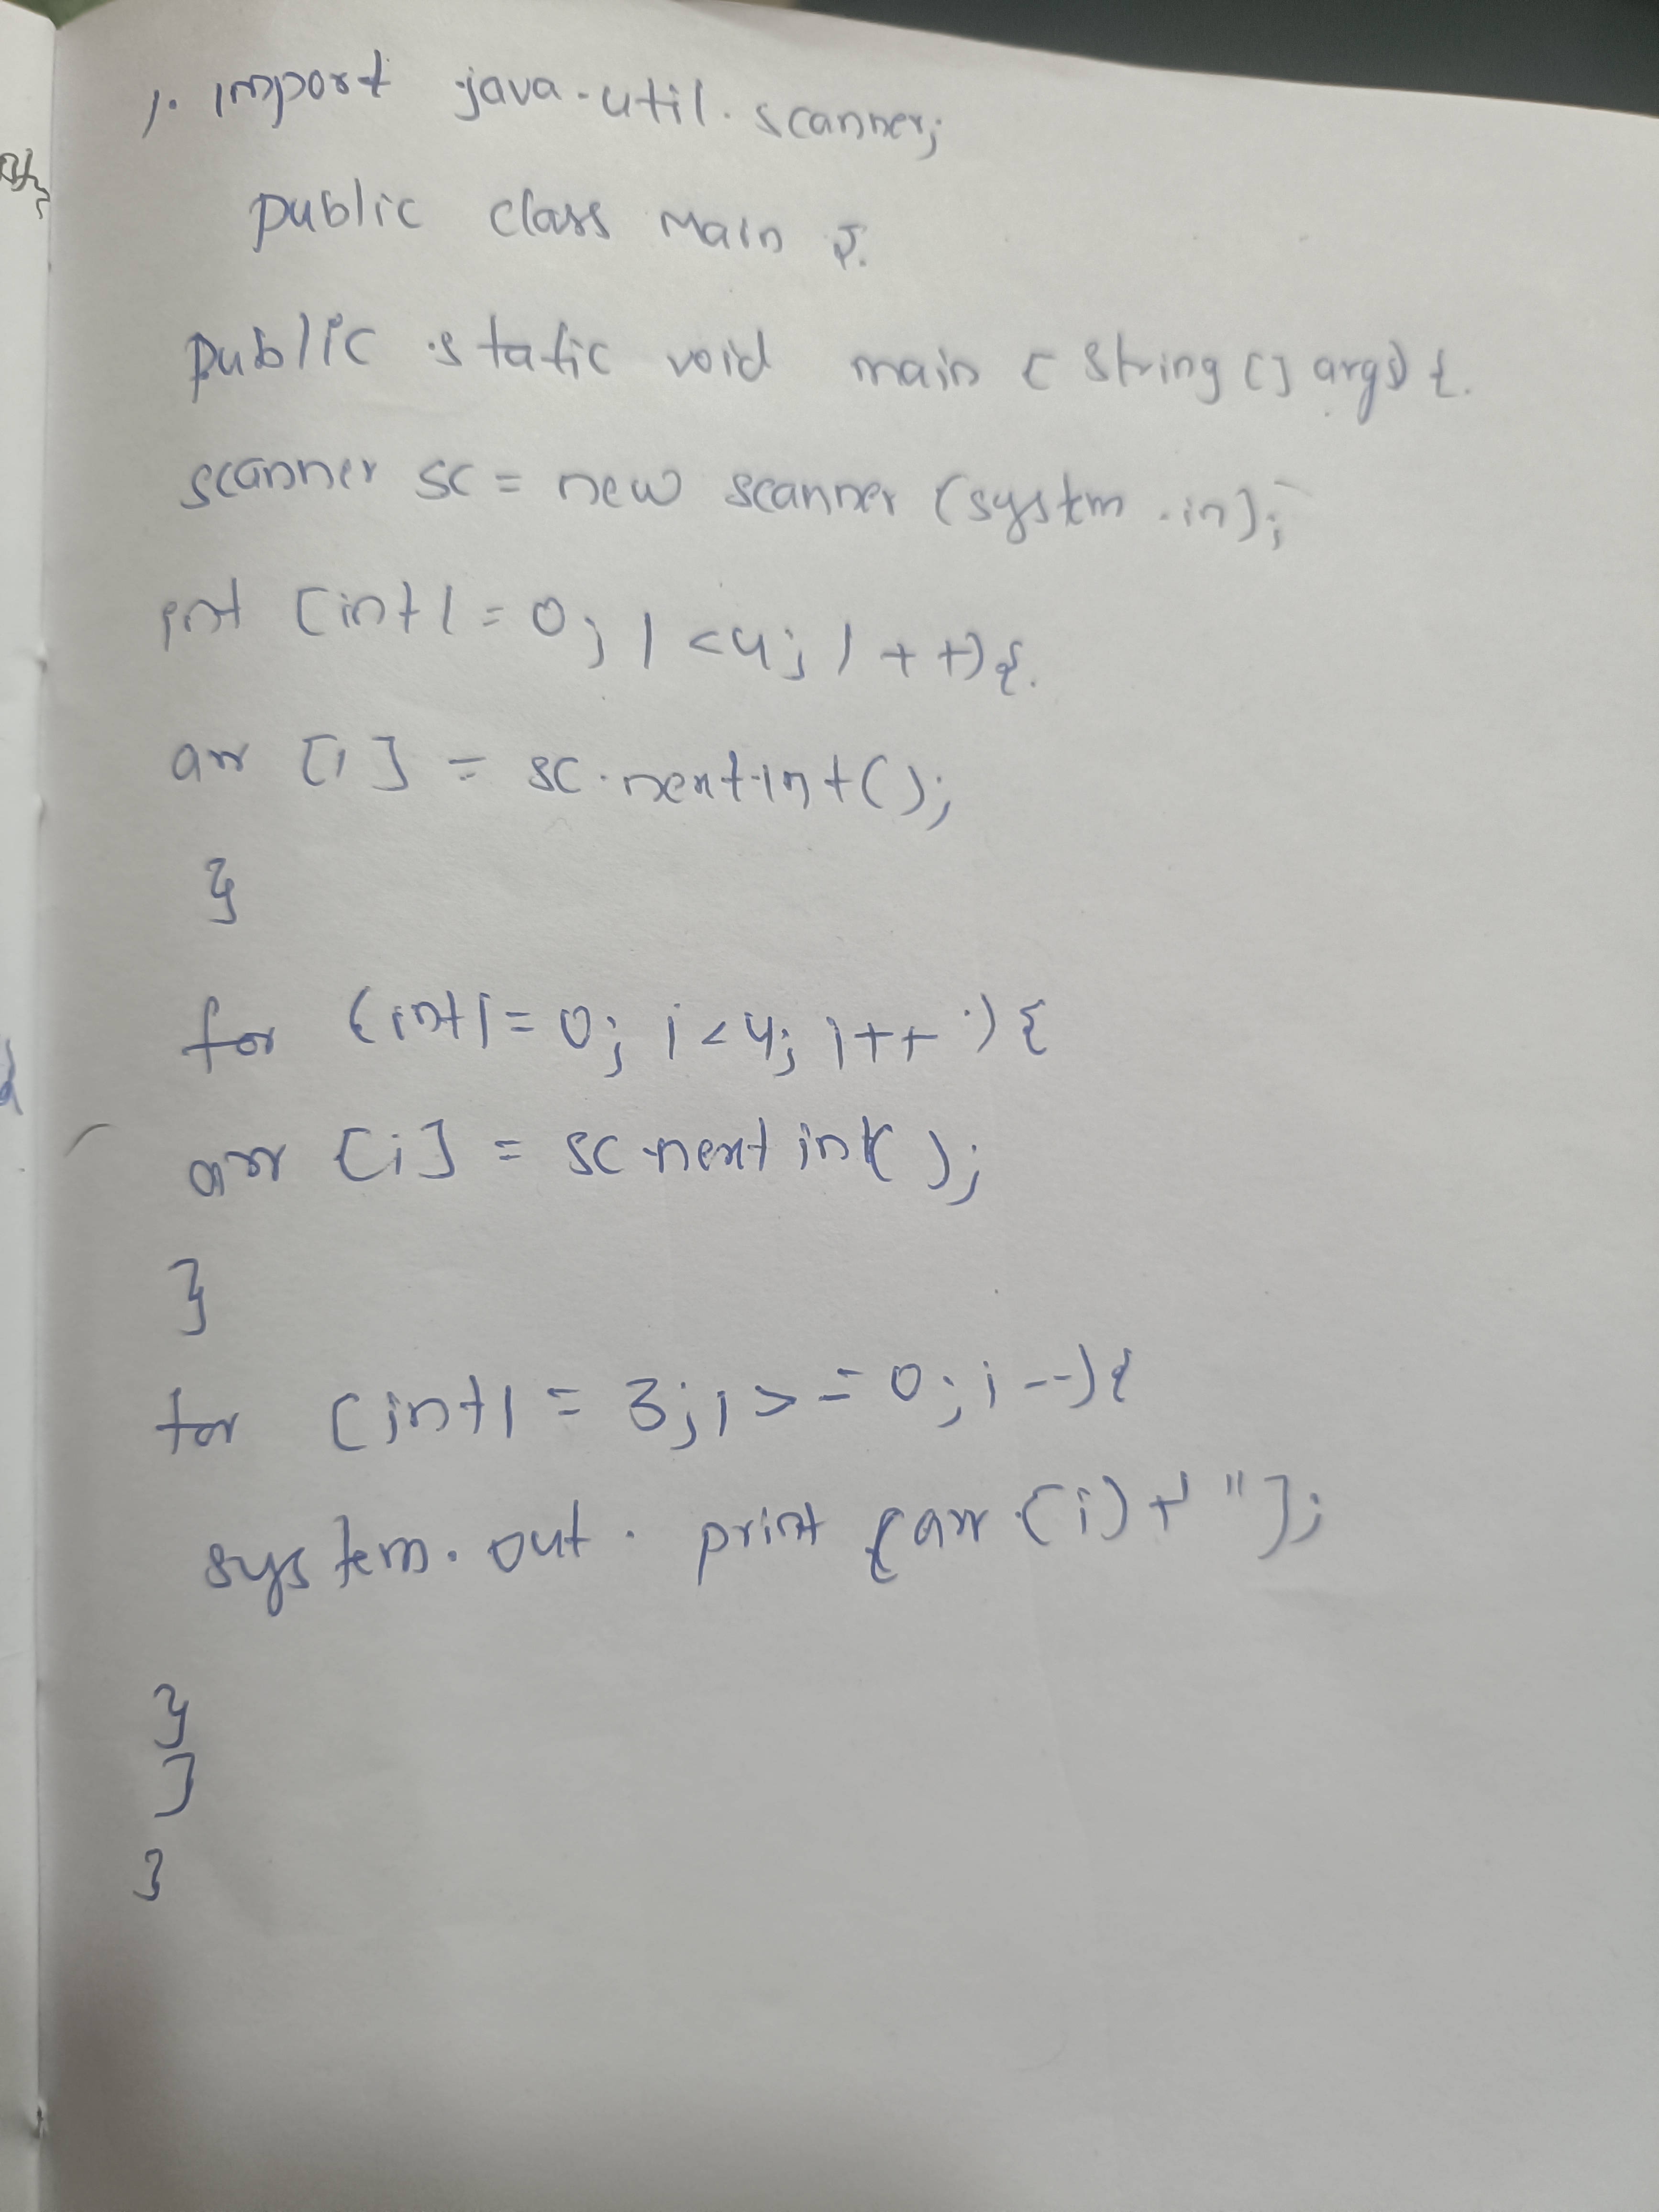 1. import java.util.scanner;
public class main {.
public static void main ( string [] args) {.
scanner sc = new scanner (system.in);
int (int i = 0; i <4; i ++){.
arr [i] = sc.next.int();
}
for (int i = 0; i <4; i++ ) {
arr [i] = sc.next int( );
}
for (int i = 3; i >= 0; i --){
system.out. print (arr (i) + " ");
}
}
}